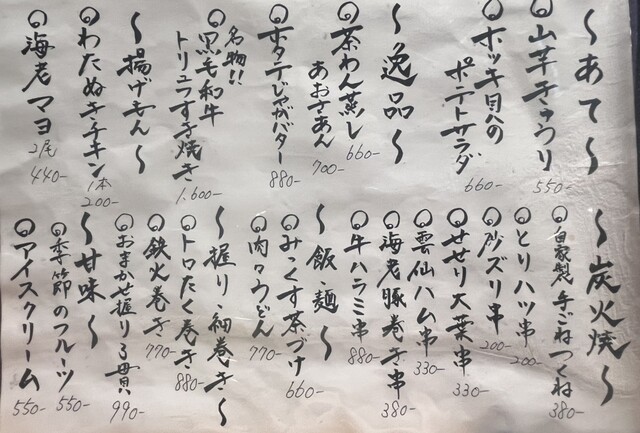 〜あて〜
◎山芋きゅうり 550-
◎ホッキ貝の
ポテトサラダ 660-
〜逸品〜
◎茶わん蒸し 660-
あおさあん 700
◎ホタテじゃがバター 880-
名物!!
◎黒毛和牛
トリュフすき焼き 1,600-
〜揚げもん〜
◎わたぬきチキン 1本 200-
◎海老マヨ 2尾 440-
〜炭火焼〜
◎自家製手ごねつくね 380-
◎とりハツ串 200-
◎砂ズリ串 200-
◎せせり大葉串 330-
◎雲仙ハム串 330-
◎海老豚巻き串 380-
◎牛ハラミ串 880-
〜飯・麺〜
◎みっくす茶づけ 660-
◎肉々うどん 770-
〜握り・細巻き〜
◎トロたく巻き 880-
◎鉄火巻き 770-
◎おまかせ握り3貫 990-
〜甘味〜
◎季節のフルーツ 550-
◎アイスクリーム 550-